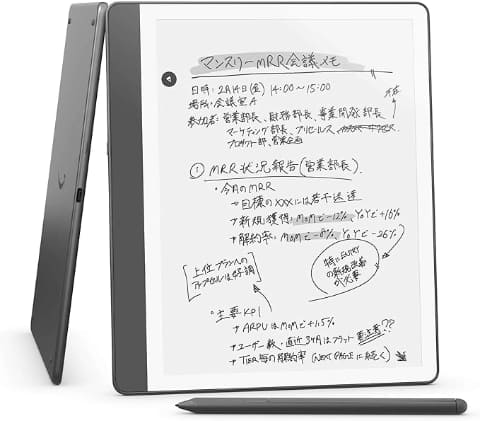 マンスリーMRR会議メモ
日時：2月14日(金) 14:00〜15:00
場所：会議室A
参加者：営業部長、財務部長、事業開発部長
マーケティング部長、プリセールス、
プロダクト部、営業企画
① MRR状況報告(営業部長)
・今月のMRR
→ 目標のXXXには若干未達
→ 新規獲得：MoMで-12%、YoYで+16%
→ 解約率：MoMで-8%、YoYで-26%
特にENTRY
の新規改善
が必要
上位プランへの
アップセルは好調
・主要KPI
→ ARPUはMoMで+1.5%
→ ユーザー数・直近3ヶ月はフラット 要注意??
→ TIER毎の解約率 (NEXT PAGEに続く)